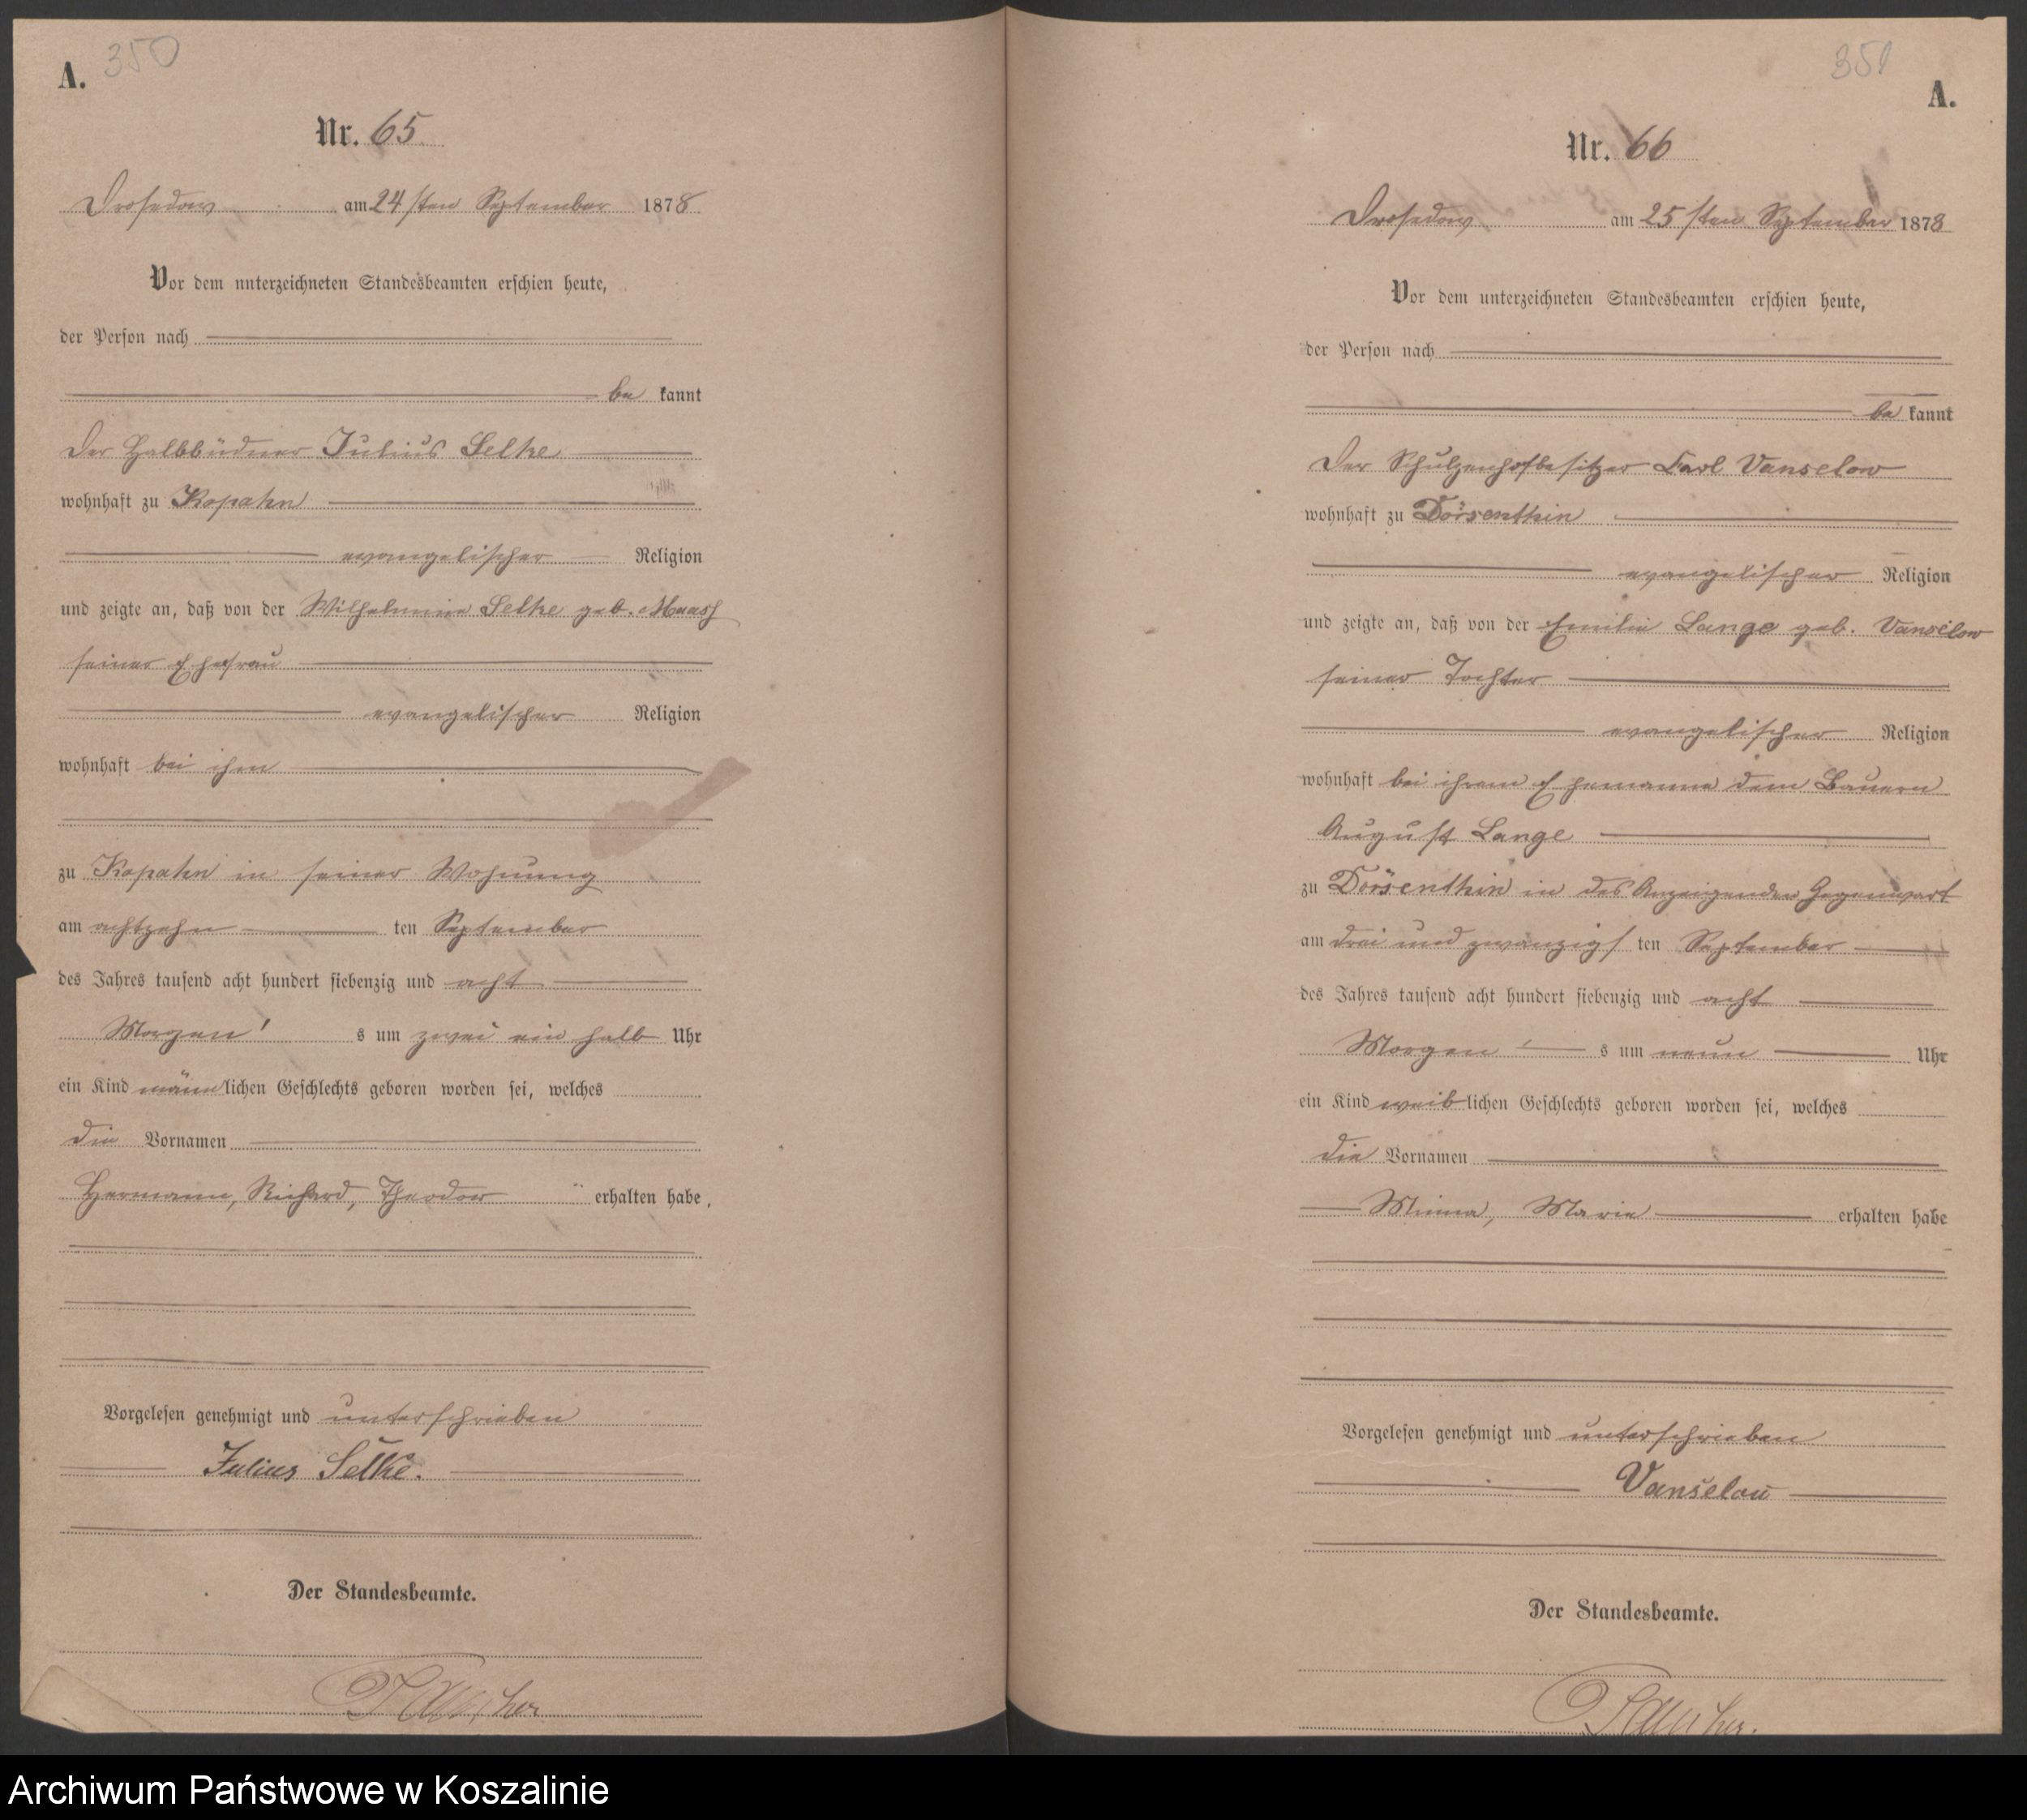 A. 350
Nr. 65.
Drosedow am 24sten September 1878.
Vor dem unterzeichneten Standesbeamten erschien heute,
der Person nach
be kannt
Der Halbbüdner Julius Selke
wohnhaft zu Kopahn
evangelischer Religion
und zeigte an, daß von der Wilhelmine Selke geb.
seiner Ehefrau
evangelischer Religion
wohnhaft bei ihm
zu Kopahn in seiner Wohnung
am achtzehn ten September
des Jahres tausend acht hundert siebenzig und acht
Morgen's um zwei ein halb Uhr
ein Kind männlichen Geschlechts geboren worden sei, welches
die Vornamen
Hermann, Richard, Theodor erhalten habe.
Vorgelesen genehmigt und unterschrieben
Julius Selke.
Der Standesbeamte.
351
A.
Nr. 66
Drosedow am 25sten September 1878
Vor dem unterzeichneten Standesbeamten erschien heute,
der Person nach
be kannt
Der Schulzenhofbesitzer Carl Vanselow
wohnhaft zu Dörsenthin
evangelischer Religion
und zeigte an, daß von der Emilie Lange geb. Vanselow
seiner Tochter
evangelischer Religion
wohnhaft bei ihrem Ehemanne dem Bauern
August Lange
zu Dörsenthin in des Anzeigenden Gegenwart
am drei und zwanzigs ten September
des Jahres tausend acht hundert siebenzig und acht
Morgen's um neun Uhr
ein Kind weiblichen Geschlechts geboren worden sei, welches
die Vornamen
Minna, Marie erhalten habe
Vorgelesen genehmigt und unterschrieben
Vanselow
Der Standesbeamte.
Archiwum Państwowe w Koszalinie